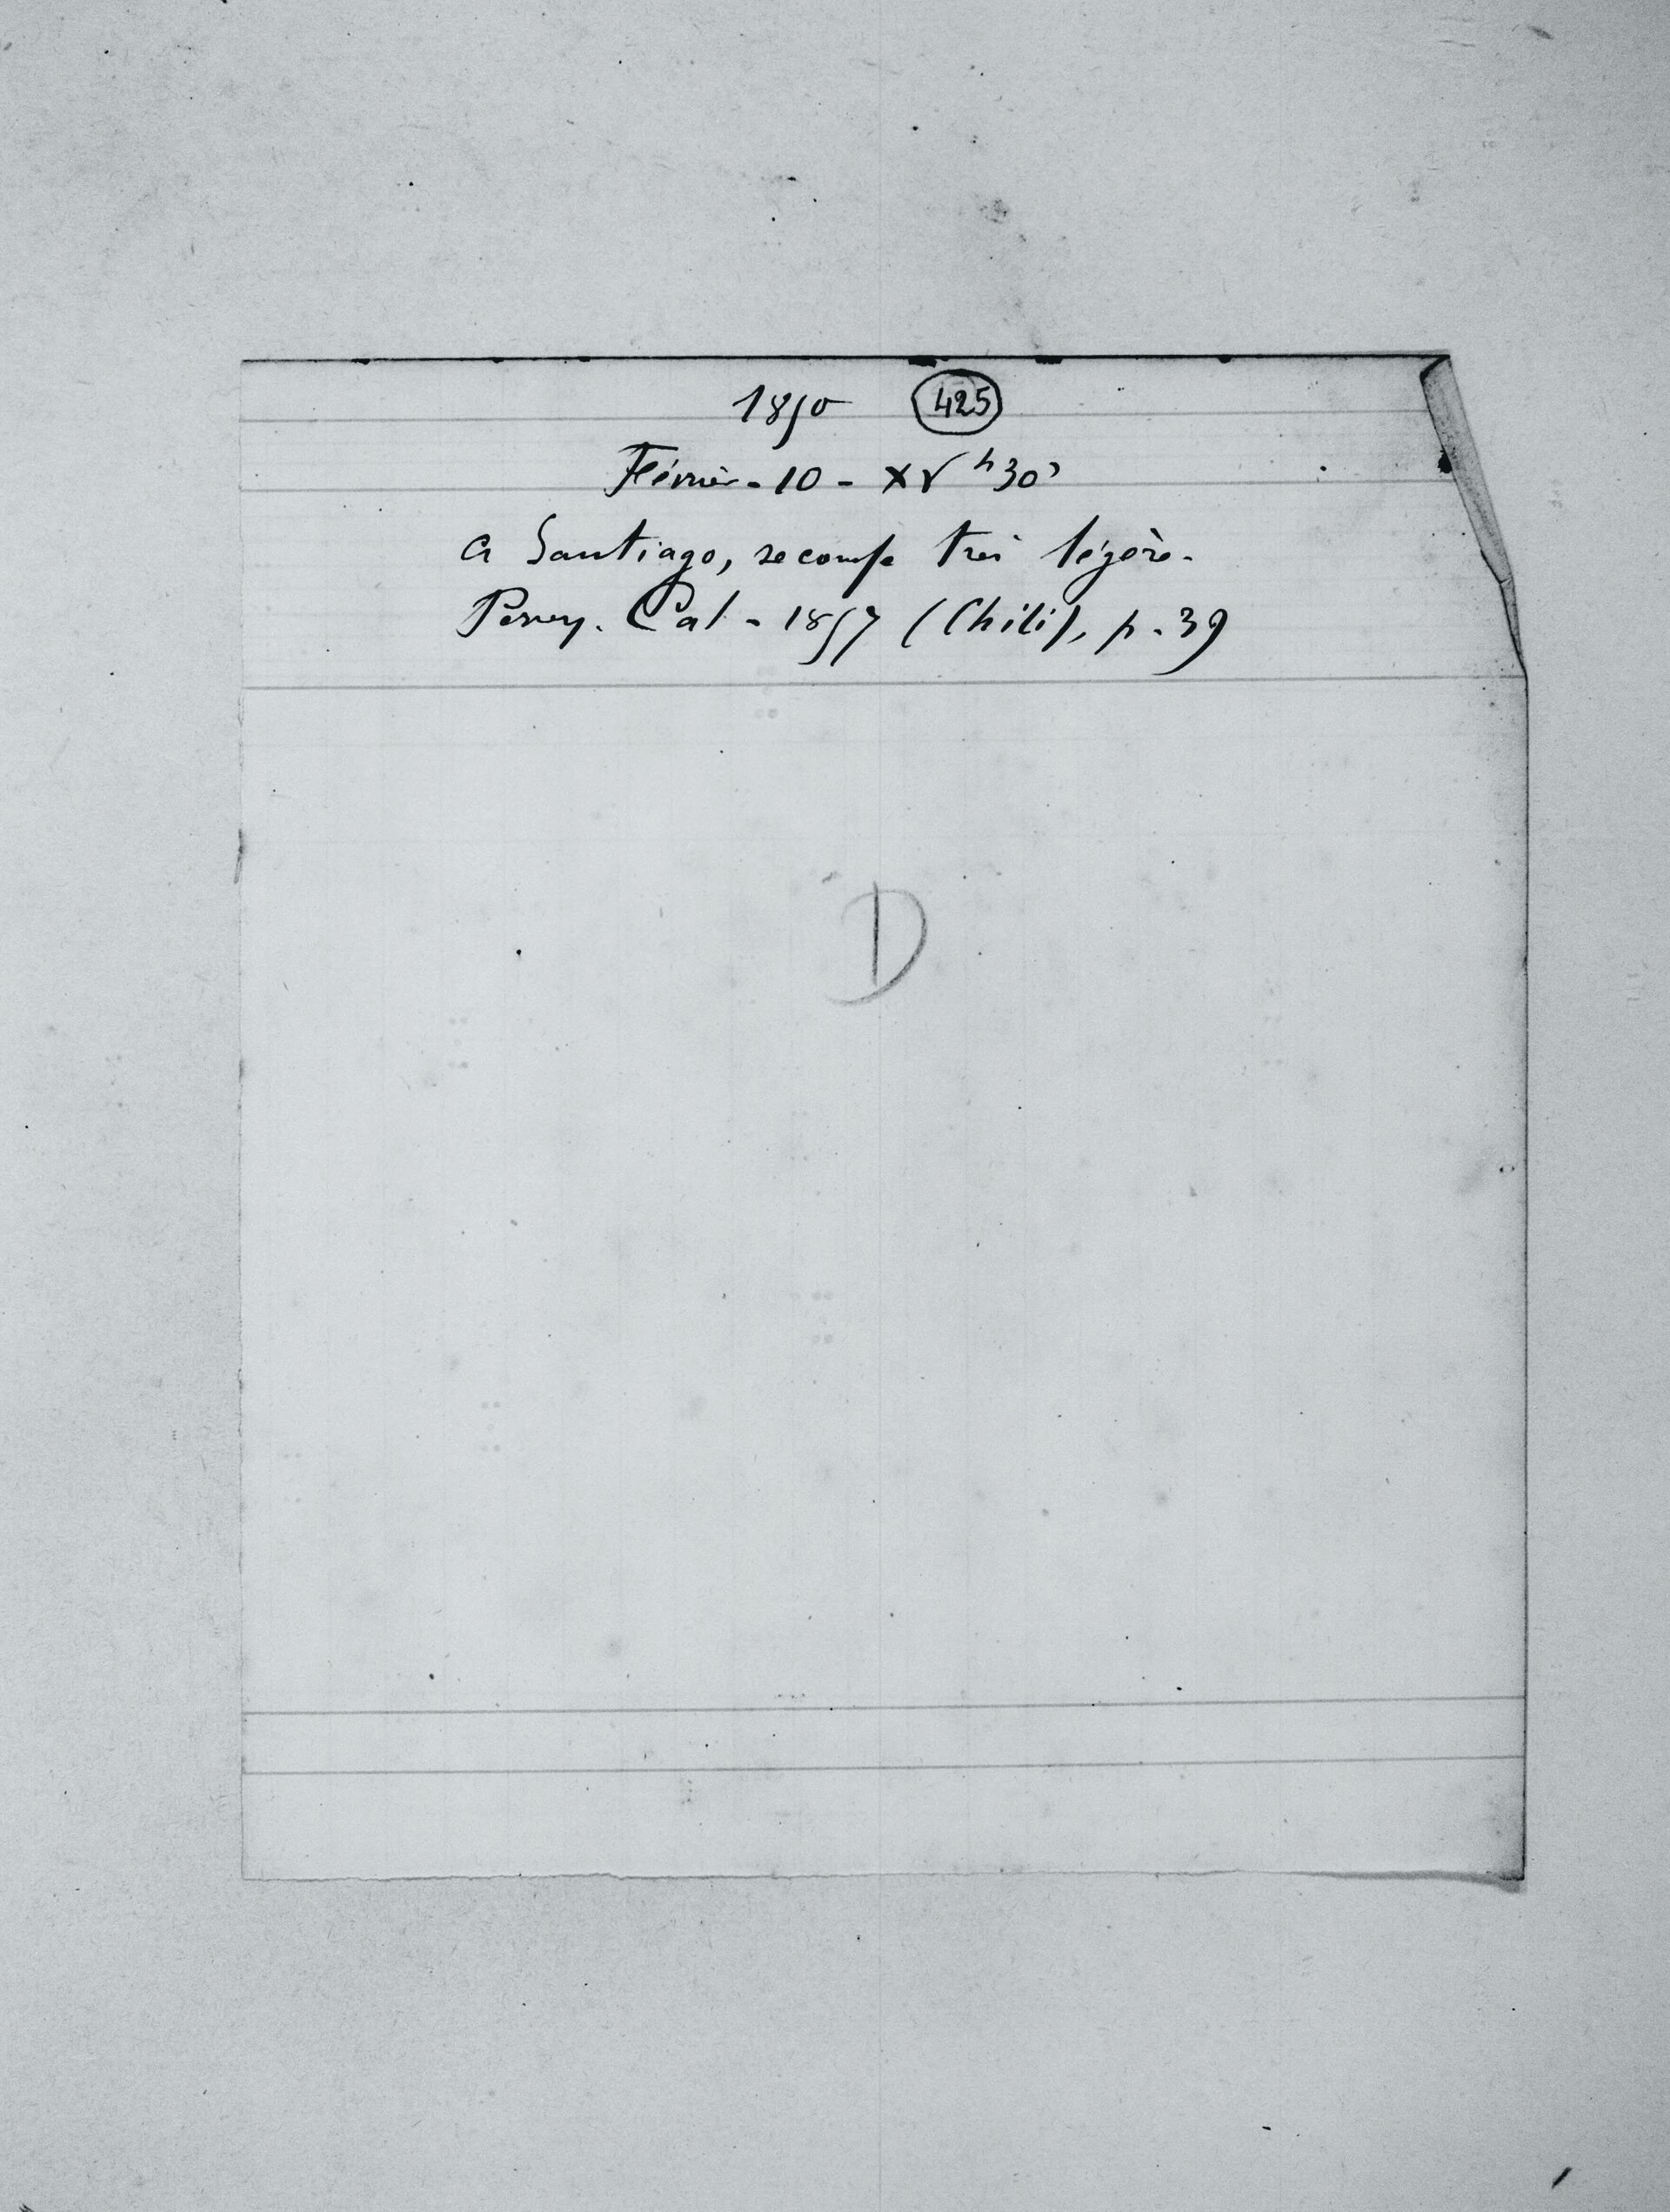 1850 425
Février - 10 - XV h 30'
a Santiago, secousse très légère.
Perrey. Cat - 1857 (Chili), p. 39
D